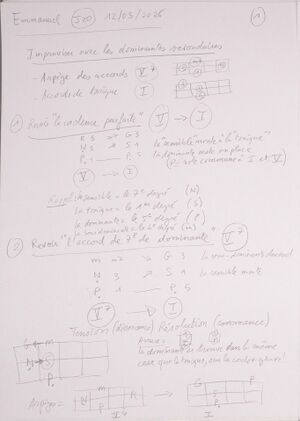 Emmanuel J20 12/03/2026 1
Improviser avec les dominantes secondaires
- Arpège des accords V7
- Accords de tonique I
1 Revoir "la cadence parfaite" V → I
R 5 → G 3
N 3 → S 1
P. 1 P. 5
V → I
la "sensible" monte à la "tonique"
la dominante reste en place
(P = note commune à I et V)
Rappel: sensible = le 7e degré (N)
la tonique = le 1er degré (S)
la dominante = le 5e degré (P)
la sous dominante = le 4e degré (m)
2 Revoir "l'accord de 7e de dominante" V7
m → G 3 la sous-dominante descend
N 3 → S 1 la sensible monte
P. 1 P. 5
V7 → I
Tension (dissonance) Résolution (consonance)
G m
N S
P.
la dominante se trouve dans la même
case que la tonique, sur la corde grave!
Arpèges =
m
N R
P.
V7
G P
S
P.
I